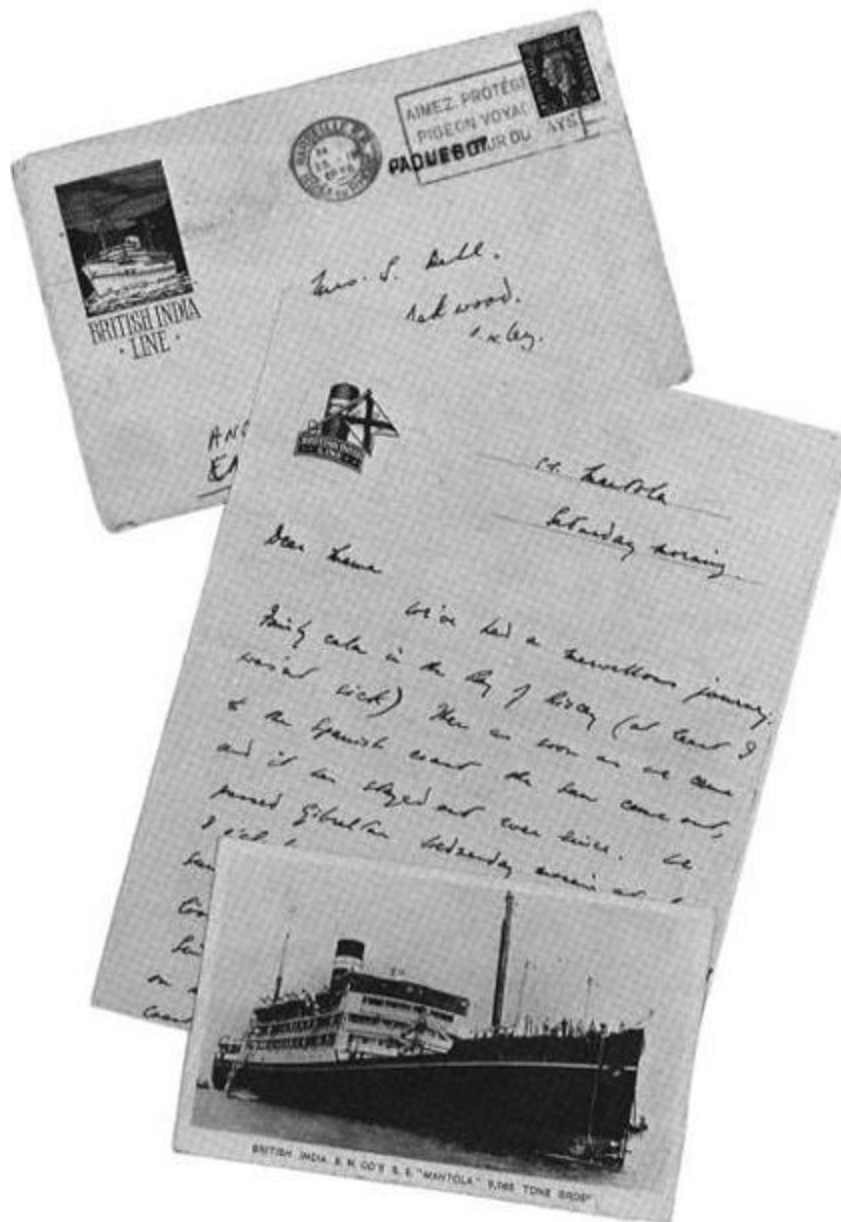 MARSEILLE
AIMEZ. PROTÉGE
PIGEON VOYA
PAQUEBOT UR DU AYS
BRITISH INDIA
· LINE ·
Mrs. S. Dahl.
Oakwood.
ANG
EN
BRITISH INDIA
LINE
s.s. Mantola
Saturday morning.
Dear Mama
We've had a marvellous journey.
Fairly calm in the Bay of Biscay (at least I
wasn't sick) Then as soon as we came
to the Spanish coast the sun came out,
and it has stayed out ever since. We
passed Gibraltar Wednesday morning at
I
on
BRITISH INDIA S. N. CO'S S. S. "MANTOLA" 9,065 TONS GROSS